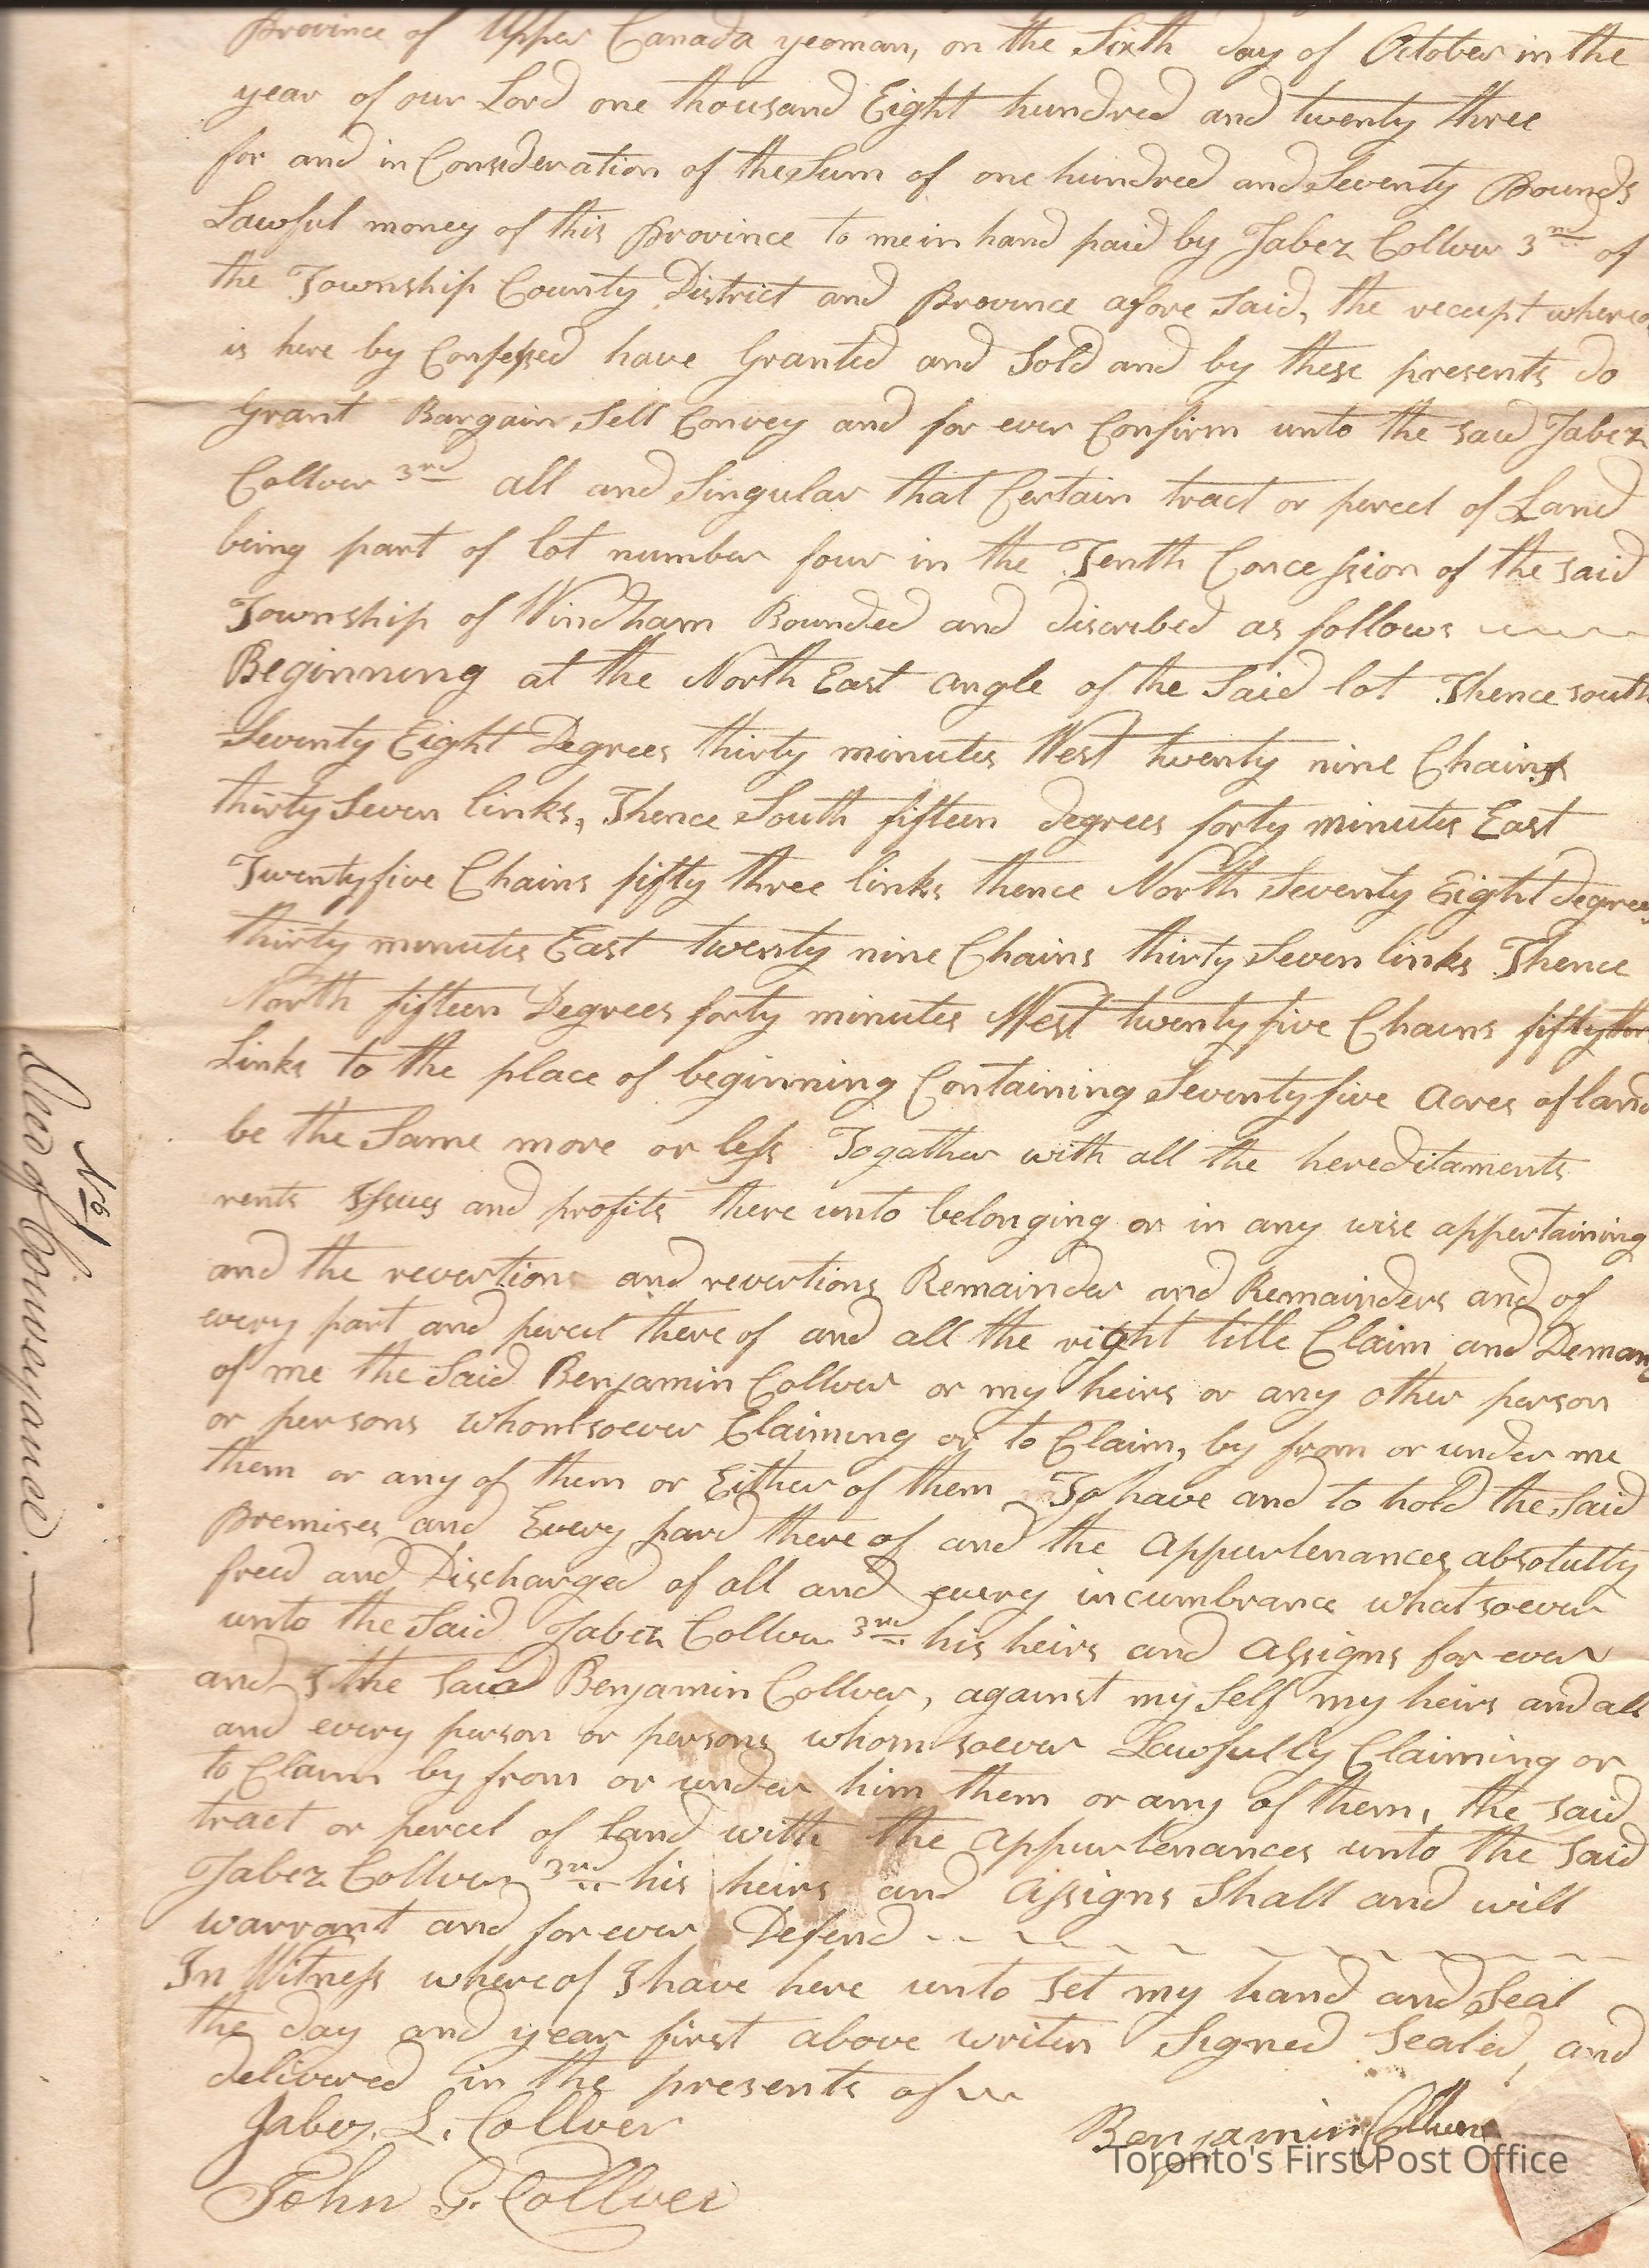 Province of Upper Canada yeoman, on the Sixth day of October in the
year of our Lord one thousand Eight hundred and twenty three
for and in Consideration of the Sum of one hundred and Seventy Pounds
Lawful money of this Province to me in hand paid by Jabez Collver 3rd of
the Township County District and Province afore Said, the receipt whereo
is here by Confessed have Granted and Sold and by these presents do
Grant Bargain Sell Convey and for ever Confirm unto the said Jabez
Collver 3rd all and Singular that Certain tract or percel of Land
being part of lot number four in the Tenth Concession of the said
Township of Windham Bounded and discribed as follows
Beginning at the North East angle of the Said lot Thence south
Seventy Eight Degrees thirty minutes West twenty nine Chains
thirty Seven links, Thence South fifteen degrees forty minutes East
Twenty five Chains fifty three links thence North Seventy Eight degrees
thirty minutes East twenty nine Chains thirty Seven links Thence
North fifteen Degrees forty minutes West twenty five Chains fifty thr
Links to the place of beginning Containing Seventy five acres of land
be the Same more or less Togather with all the hereditaments
rents Issues and profits there unto belonging or in any wise appertaining
and the revertions and revertions Remainder and Remainders and of
every part and percel there of and all the right title Claim and Deman
of me the Said Benjamin Collver or my heirs or any other person
or persons whomsoever Claiming or to Claim, by from or under me
them or any of them or Either of them To have and to hold the Said
Premises and Every pard there of and the appurtenances absolutly
freed and Discharged of all and every incumbrance whatsoever
unto the Said Jabez Collver 3rd his heirs and assigns for ever
and I the Said Benjamin Collver, against my Self my heirs and all
and every person or persons whomsoever Lawfully Claiming or
to Claim by from or under him them or any of them, the said
tract or percel of Land with the appurtenances unto the said
Jabez Collver 3rd his heirs and assigns Shall and will
warrant and for ever Defend
In Witness whereof I have here unto set my hand and Seal
the day and year first above writen Signed Sealed, and
delivered in the presents of
Jabez. L. Collver
Benjamin Collver
John G. Collver
No. 1
Deed of Conveyance.
Toronto's First Post Office